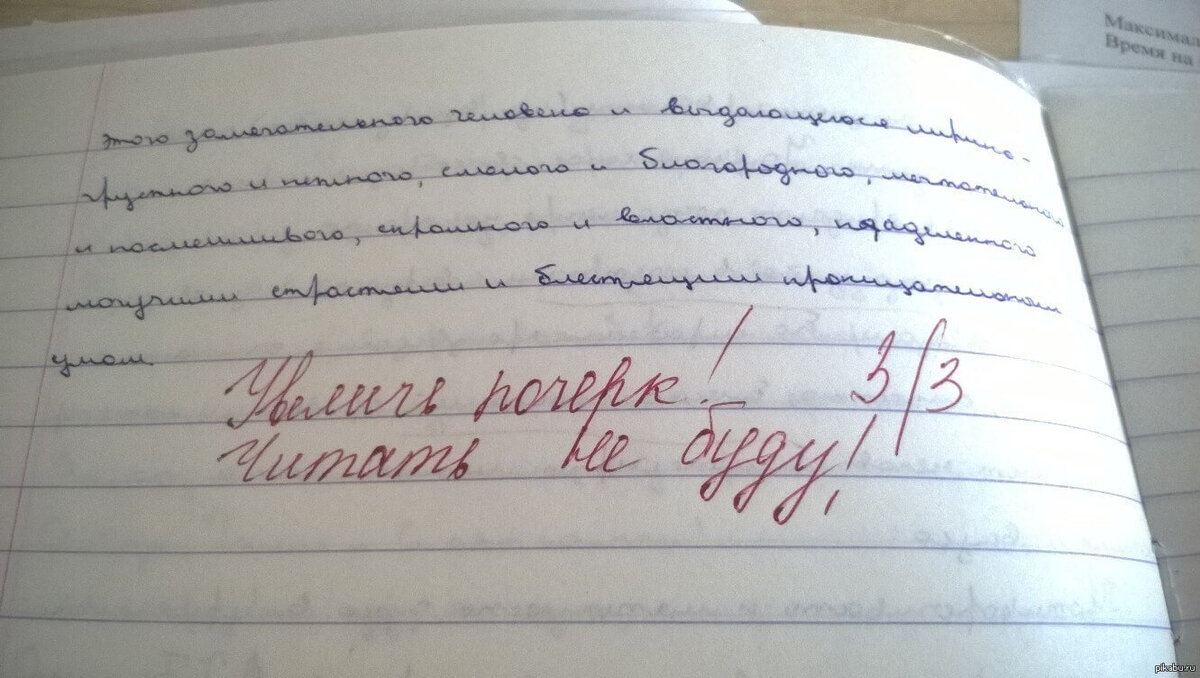 Максимал
Время на
этого замечательного человека и выдающегося лирика -
грустного и нежного, смелого и благородного, мечтательного
и насмешливого, скромного и властного, наделенного
могучими страстями и блестящим проницательным
умом.
Увеличь почерк! 3/3
Читать не буду!
pikabu.ru